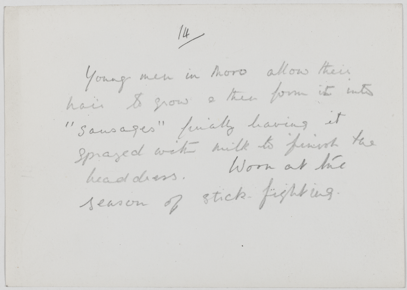 14
Young men in Moro allow their
hair to grow & then form it into
"sausages" finally having it
sprayed with milk to finish the
headdress. Worn at the
season of stick-fighting.